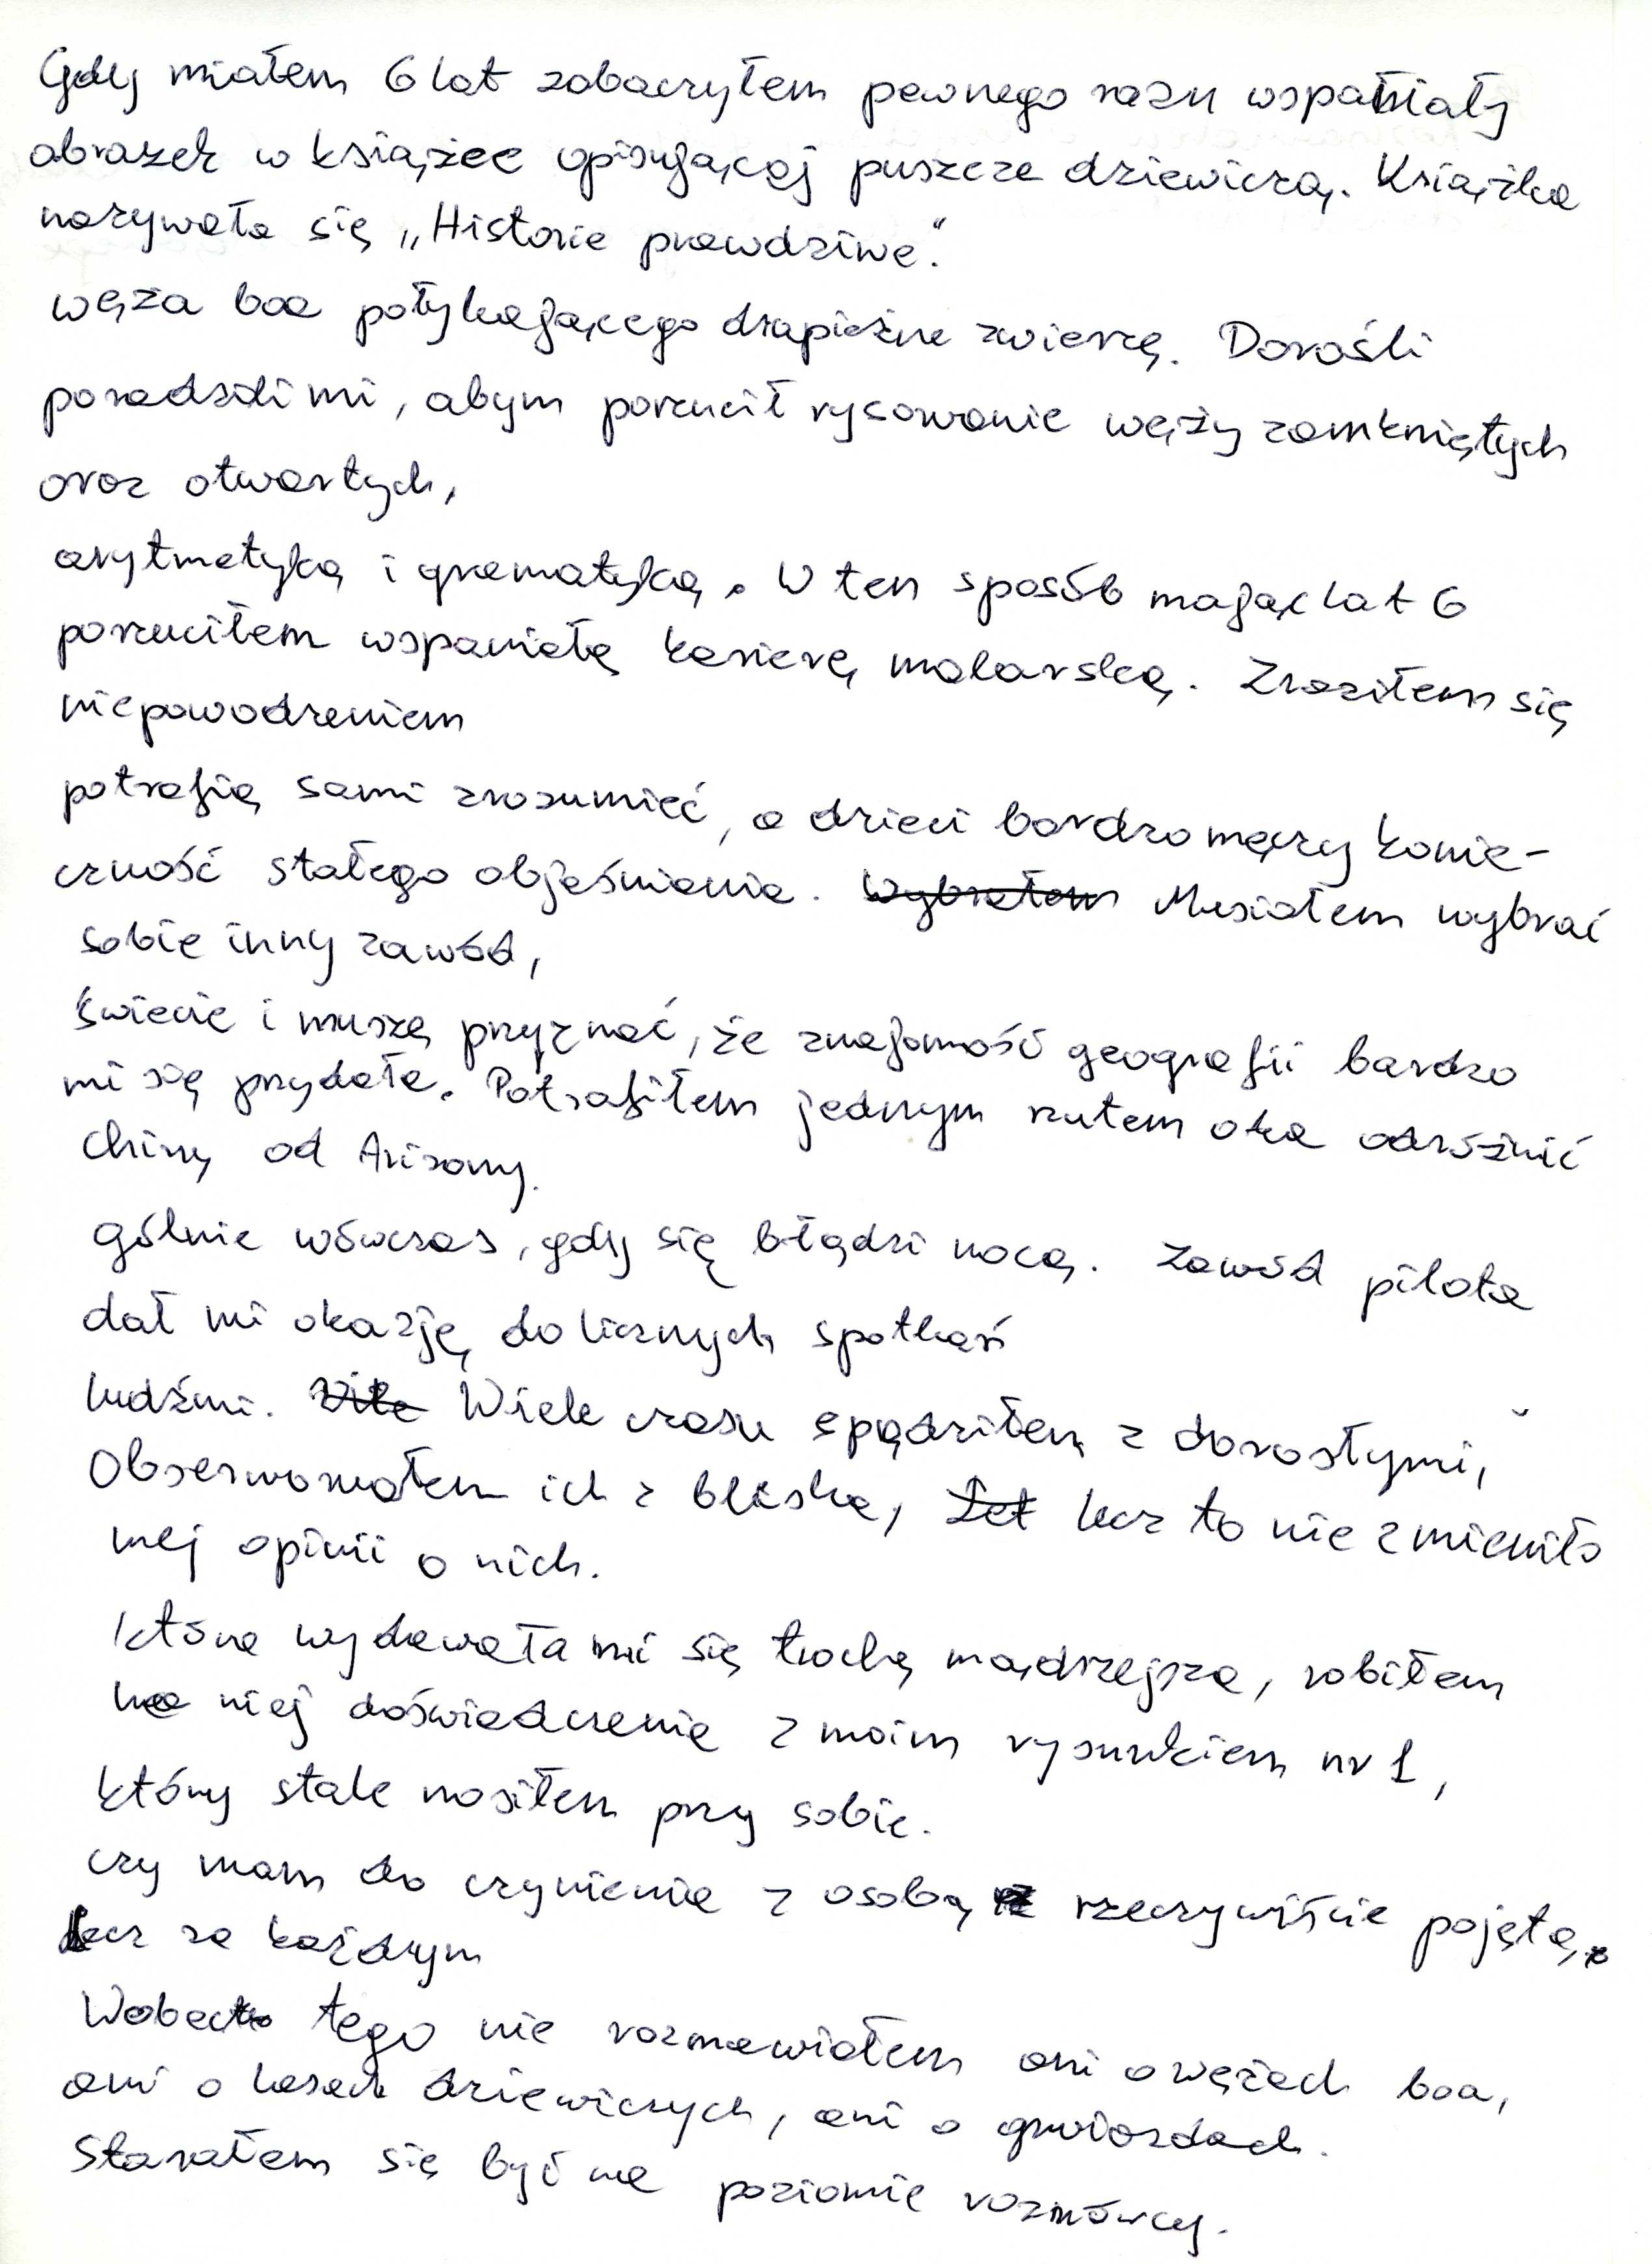 Gdy miałem 6 lat zobaczyłem pewnego razu wspaniały
obrazek w książce opisującej puszcze dziewiczą. Książka
nazywała się „Historie prawdziwe“.
węża boa połykającego drapieżne zwierzę. Dorośli
poradzili mi, abym porzucił rysowanie węży zamkniętych
oraz otwartych,
arytmetyką i gramatyką. W ten sposób mając lat 6
porzuciłem wspaniałą karierę malarską. Zraziłem się
niepowodzeniem
potrafią sami zrozumieć, a dzieci bardzo męczy konie-
czność stałego objaśniania. Wybrałem Musiałem wybrać
sobie inny zawód,
świecie i muszę przyznać, że znajomość geografii bardzo
mi się przydała. Potrafiłem jednym rzutem oka odróżnić
Chiny od Arizony.
gólnie wówczas, gdy się błądzi nocą. Zawód pilota
dał mi okazję do licznych spotkań
ludźmi. Wile Wiele czasu spędziłem z dorosłymi,
Obserwowałem ich z bliska, Let lecz to nie zmieniło
mej opinii o nich.
która wydawała mi się trochę mądrzejsza, robiłem
na niej doświadczenie z moim rysunkiem nr 1,
który stale nosiłem przy sobie.
czy mam do czynienia z osobą rzeczywiście pojętą.
lecz za każdym
Wobec tego nie rozmawiałem ani o wężach boa,
ani o lasach dziewiczych, ani o gwiazdach.
Starałem się być na poziomie rozmówcy.